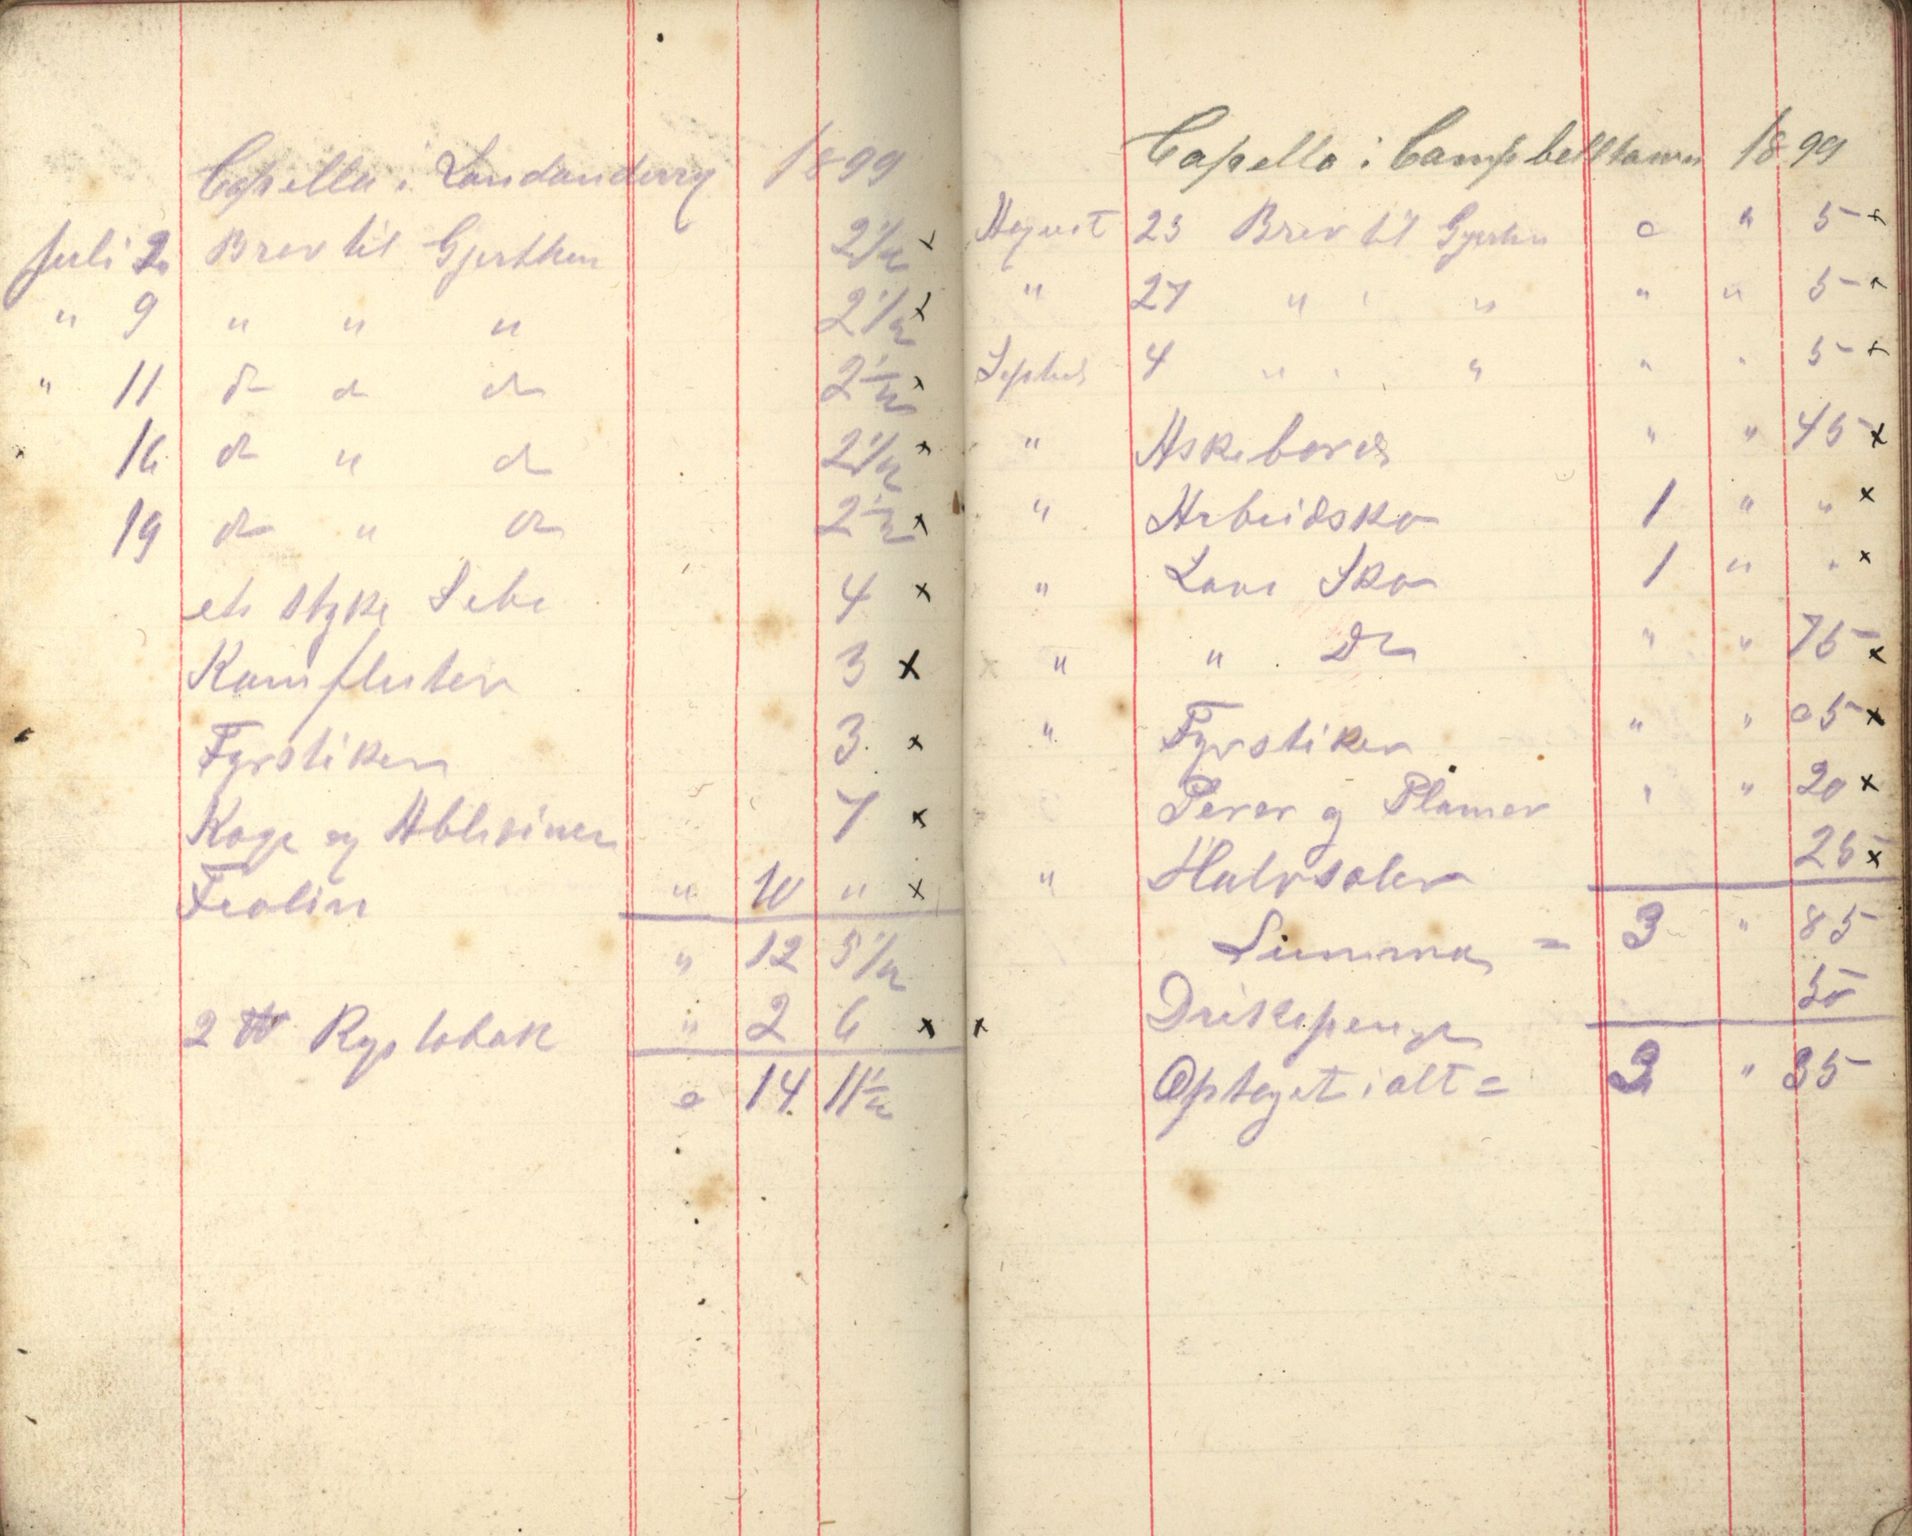 Capella i Londonderry 1899
Juli 2 Brev til Gjerthen 2 1/2 x
" 9 " " " 2 1/2 x
" 11 do do do 2 1/2 x
16 do " do 2 1/2 x
19 do " do 2 1/2 x
et styke Sebe 4 x
Kamfluter 3 x
Fyrstiker 3 x
Kage og Ablesiner 7 x
Feolin " 10 " x
" 12 5 1/2
2 ℔ Rygtobak " 2 6 x
" 14 11 1/2
Capella i Campbelltown 1899
August 23 Brev til Gjerthen o " 5 x
" 27 " " " " " 5 x
Septbr 4 " " " " " 5 x
" Askebord " " 45 x
" Arbeidsko 1 " " x
" Lave Sko 1 " " x
" " Do " " 75 x
" Fyrstiker " " 05 x
Perer og Plomer " " 20 x
" Halvsoler 25 x
Summa = 3 " 85
x Drikepenge 50
Optaget i alt = 3 " 35